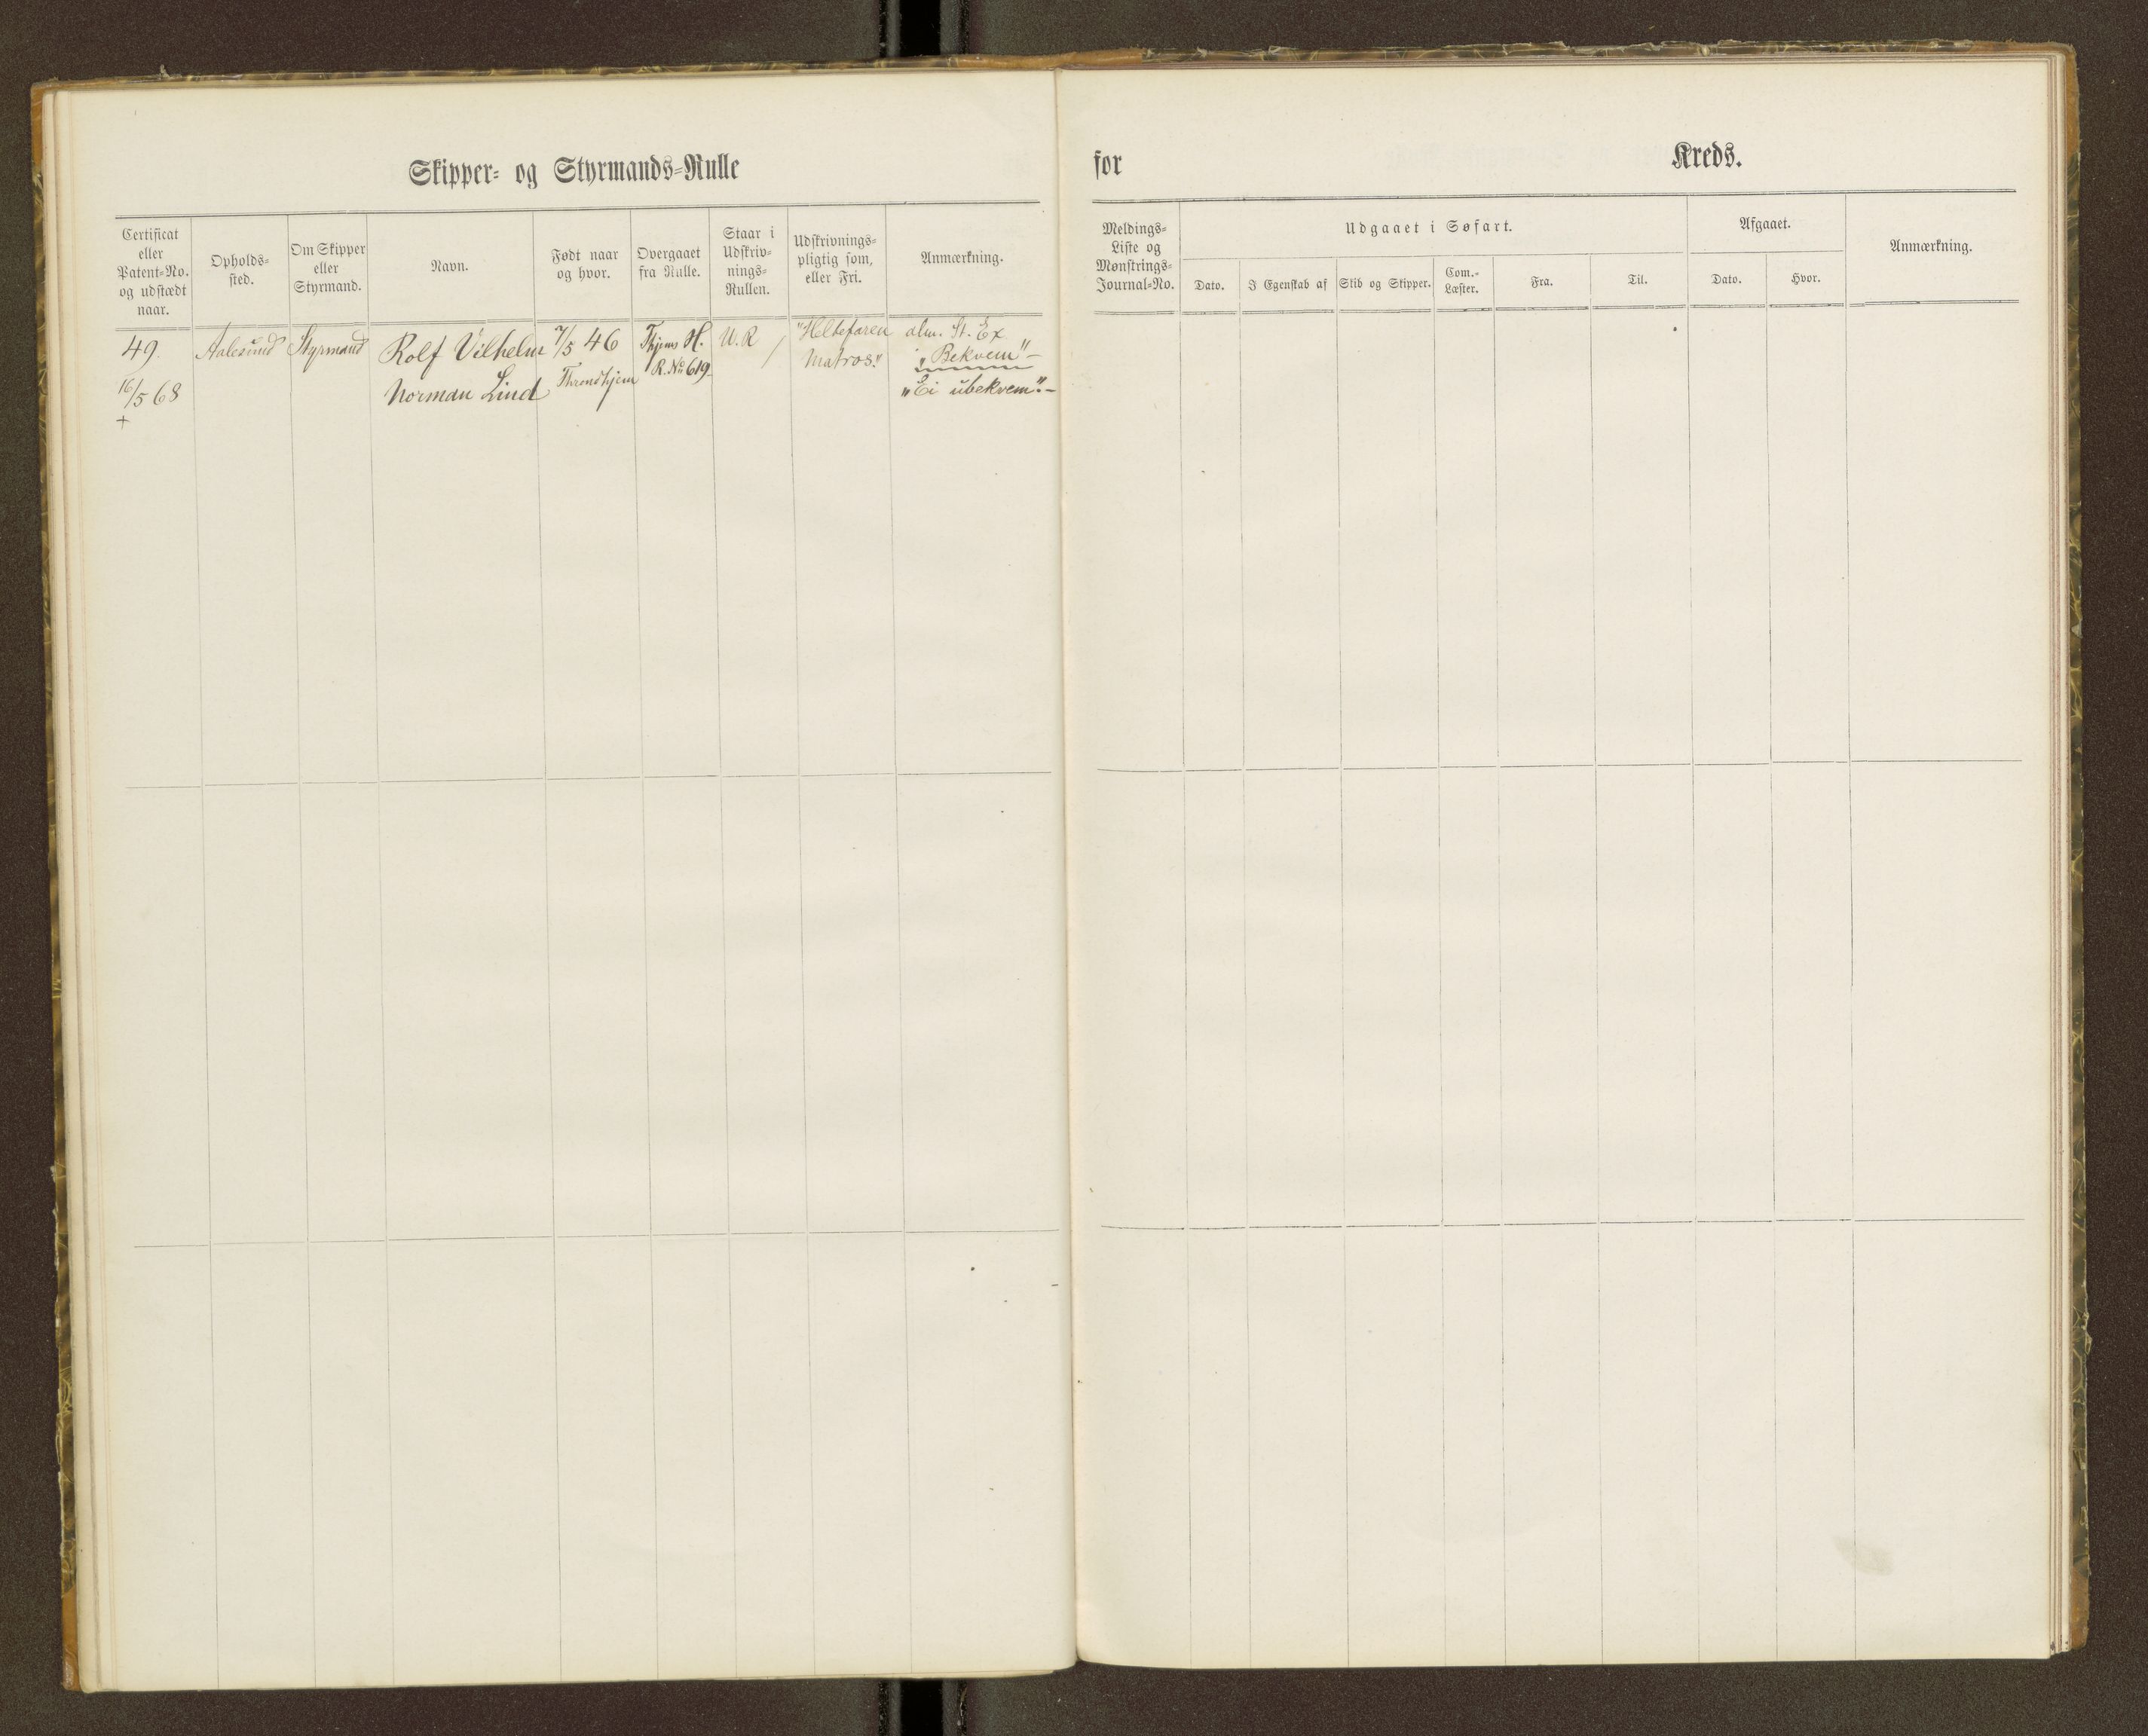 Skipper- og Styrmands-Rulle
Certificat eller Patent-No. og udstædt naar.
Opholds-sted.
Om Skipper eller Styrmand.
Navn.
Født naar og hvor.
Overgaaet fra Rulle.
Staar i Udskriv-nings-Rullen.
Udskrivnings-pligtig som, eller Fri.
Anmærkning.
49.
16/5 68
+
Aalesund
Styrmand
Rolf Vilhelm
Norman Lind
7/5 46
Throndhjem
Thjems H.
R. No 619
U. R /
"Heltefaren
Matros."
alm. St. Ex
"Bekvem"-
"Ei ubekvem".-
for Kreds.
Meldings-Liste og Mønstrings-Journal-No.
Udgaaet i Søfart.
Dato.
I Egenskab af
Skib og Skipper.
Com.-Læster.
Fra.
Til.
Afgaaet.
Dato.
Hvor.
Anmærkning.